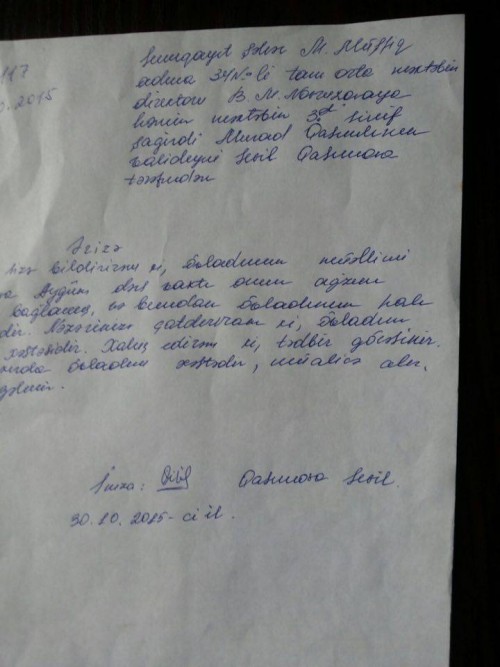 117
Sumqayıt şəhər M. Müşfiq
.2015
adına 34 №-li tam orta məktəbin
direktoru B. M. Novruzovaya
həmin məktəbin 3 sinif
şagirdi Murad Qasımlının
valideyni Sevil Qasımova
tərəfindən
Ərizə
bildirirəm ki, övladımın müəllimi
Aygün dərs vaxtı onun ağzını
bağlamış, və bundan övladımın halı
Nəzərinizə çatdırıram ki, övladım
xəstəsidir. Xahiş edirəm ki, tədbir görəsiniz.
övladım xəstədir, müalicə alır,
gəlmir.
İmza: Qasımova Sevil.
30.10.2015-ci il.